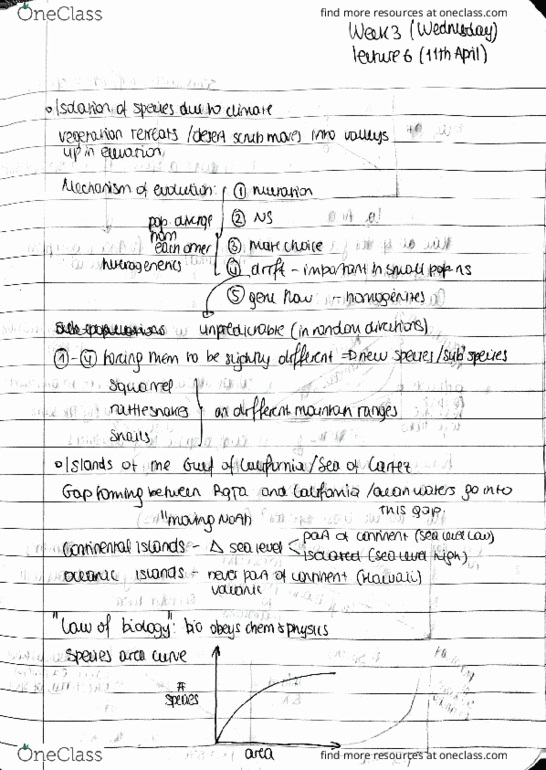 OneClass
find more resources at oneclass.com
Week 3 (Wednesday)
lecture 6 (11th April)
Isolation of species due to climate
vegetation retreats / desert scrub moves into valleys
up in elevation
Mechanism of evolution: ① mutation
pop. diverge ② NS
from
each other ③ mate choice
heterogeneits ④ drift - important in small pop ns
⑤ gene flow - homogenizes
unpredictable (in random directions)
①-④ forcing them to be slightly different ⇒ new species/sub species
squirrel
rattlesnakes on different mountain ranges
snails
Islands of the Gulf of California / Sea of Cortez
Gap forming between Baja and California / ocean waters go into
this gap.
"moving NOAH"
continental islands - Δ sea level part of continent (sea level low)
isolated (sea level high)
oceanic islands - never part of continent (Hawaii)
volcanic
"law of biology": bio obeys chem & physics
Species area curve
#
species
area
OneClass
find more resources at oneclass.com